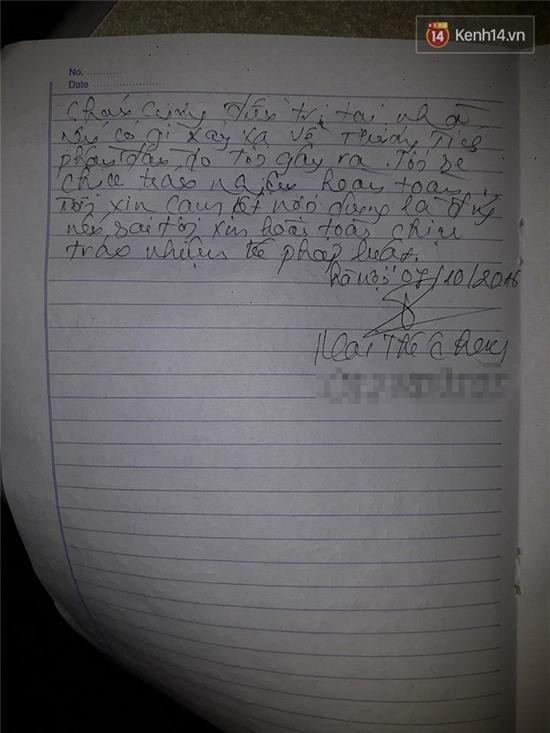 14
Kenh14.vn
No.
Date
cháu Cường điều trị tại nhà
nếu có gì xảy xa về Thương Tích
phần do tôi gây ra. Tôi sẽ
chịu trác nhiệm hoàn toàn.
Tôi xin cam kết nội dung là đúng
nếu sai tôi xin hoàn toàn chịu
trác nhiệm pháp luật.
Hà nội 07/10/2016
Mai Thế